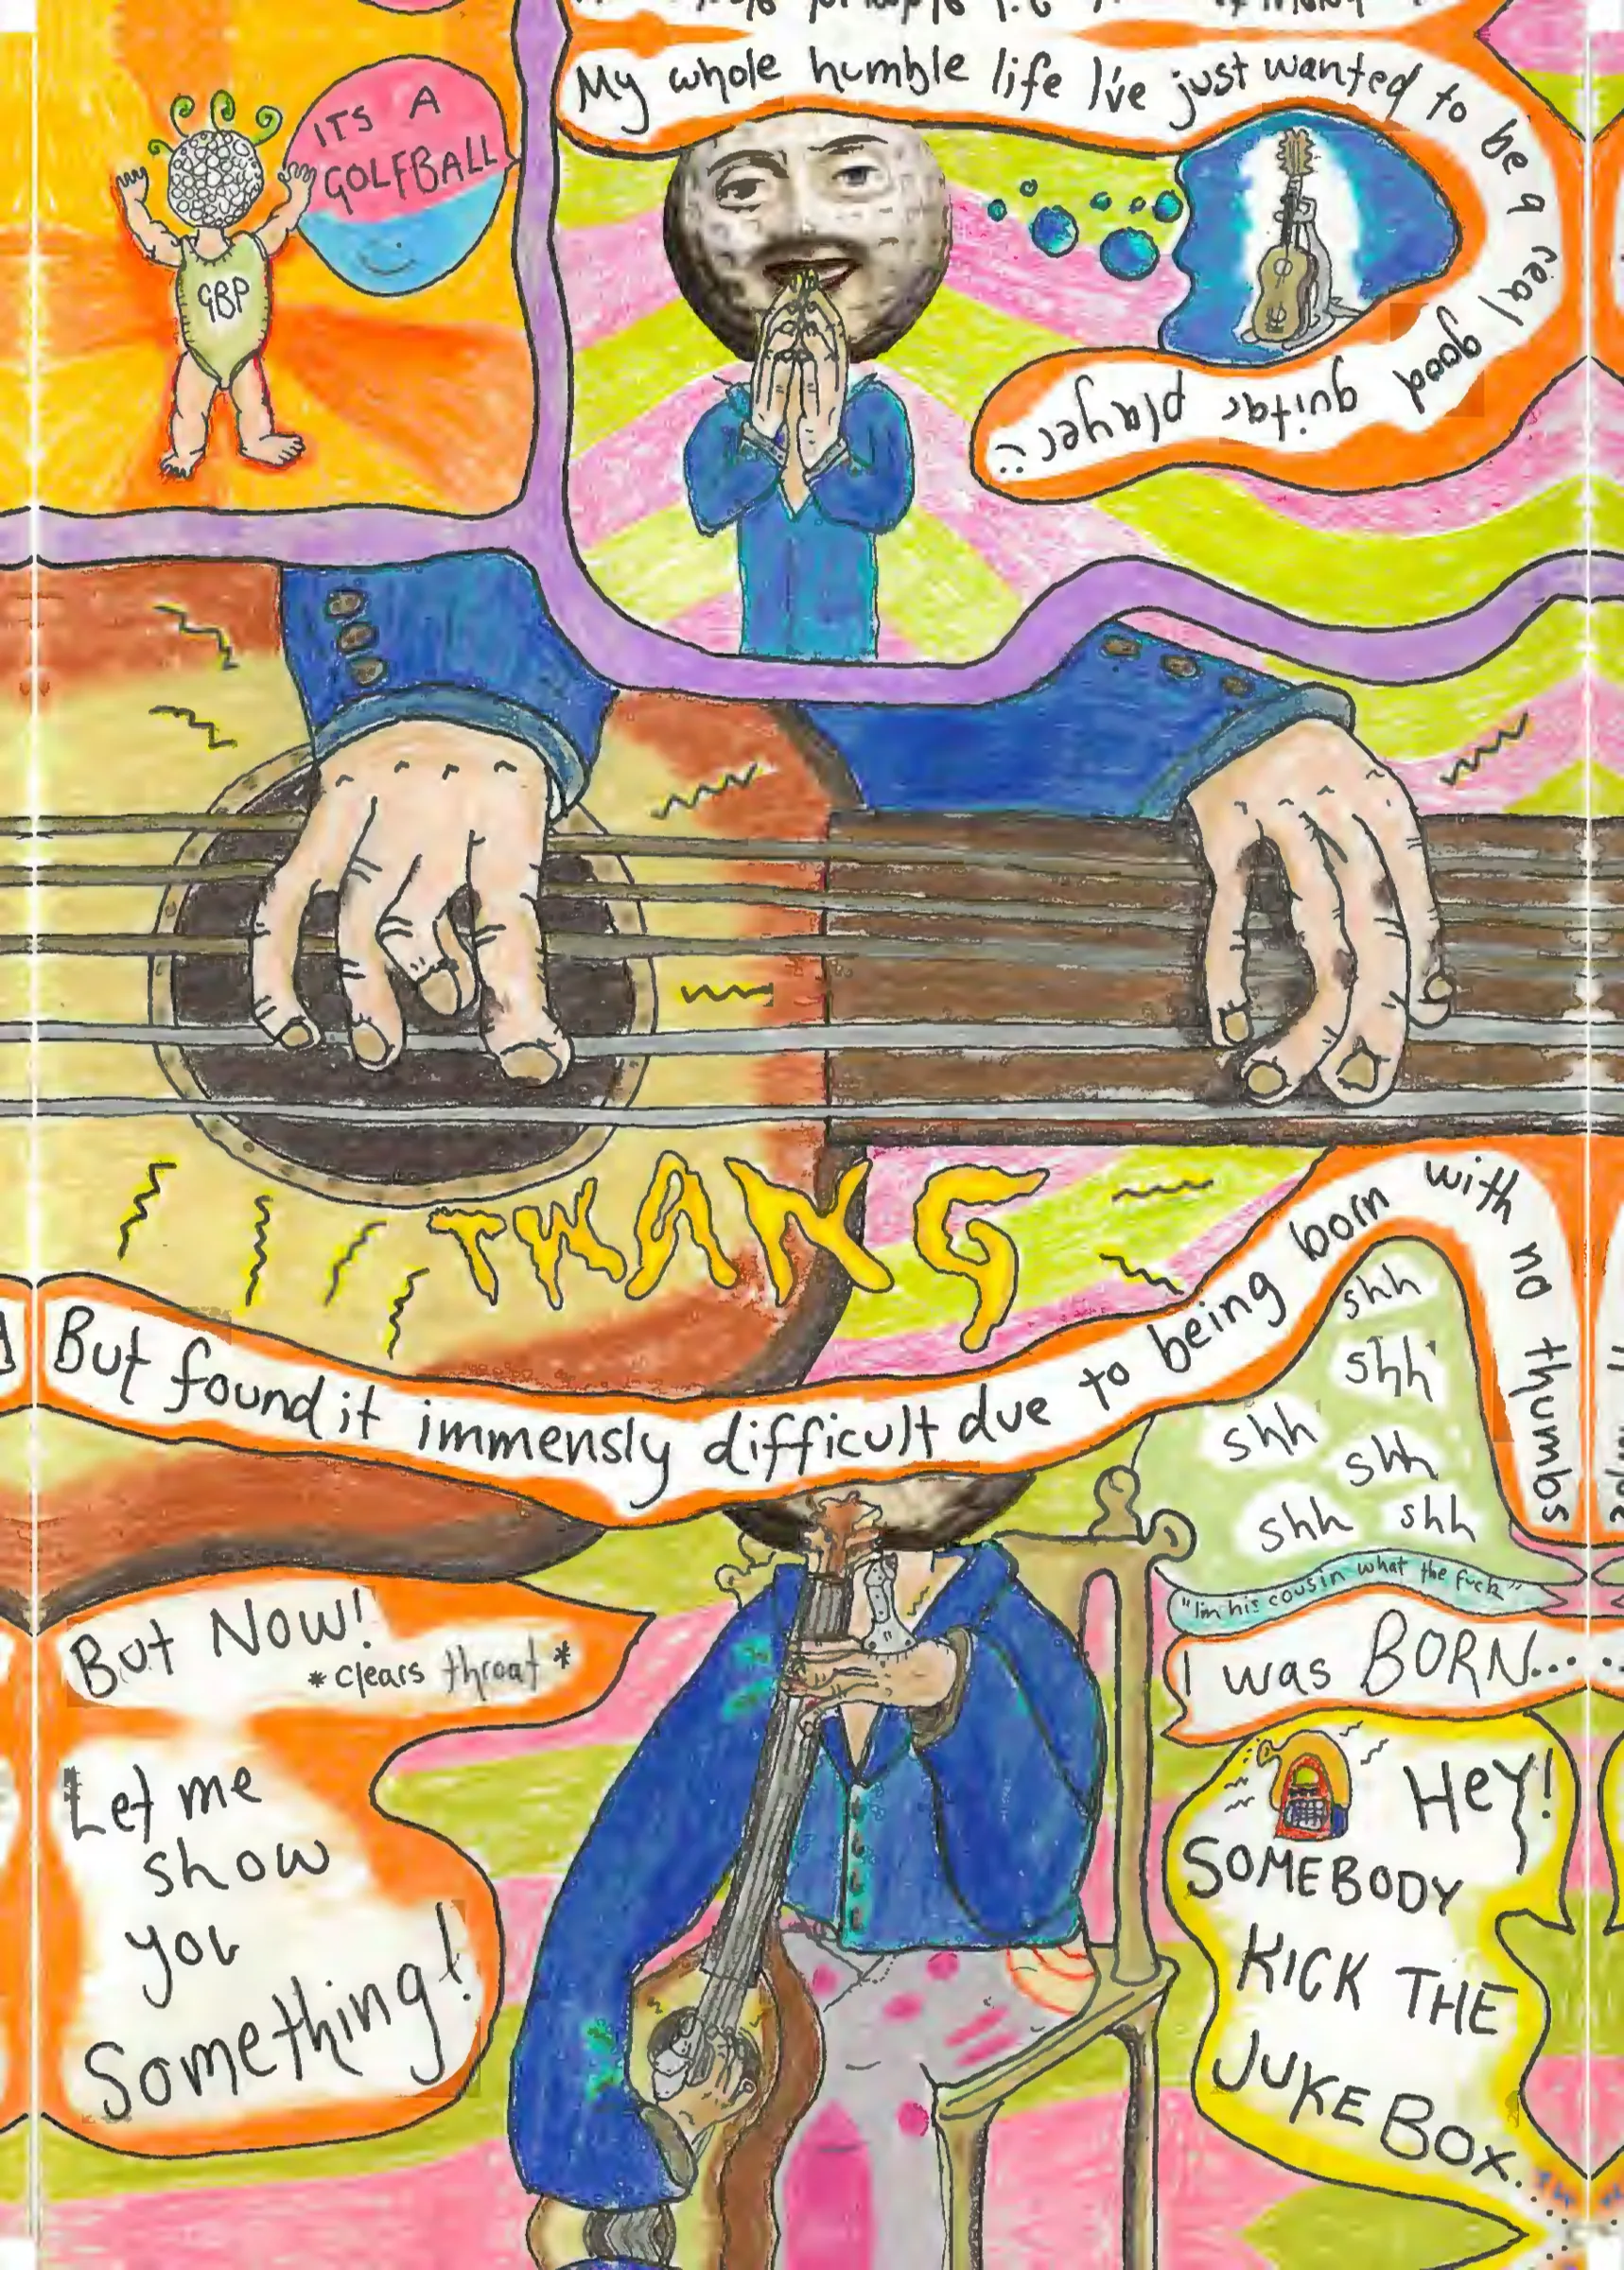 ITS A
GOLFBALL
GBP
My whole humble life I've just wanted to be a real good guitar player :
TWANG
But found it immensly difficult due to being born with no thumbs
shh
shh
shh
shh
shh shh
"I'm his cousin what the fuck"
But NOW!
*clears throat*
Let me
show
you
Something!
I was BORN.....
HeY!
SOMEBODY
KICK THE
JUKE BOX...